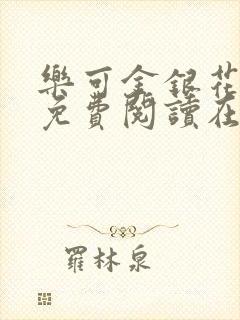 樂可金銀花
免費閱讀在
羅林泉